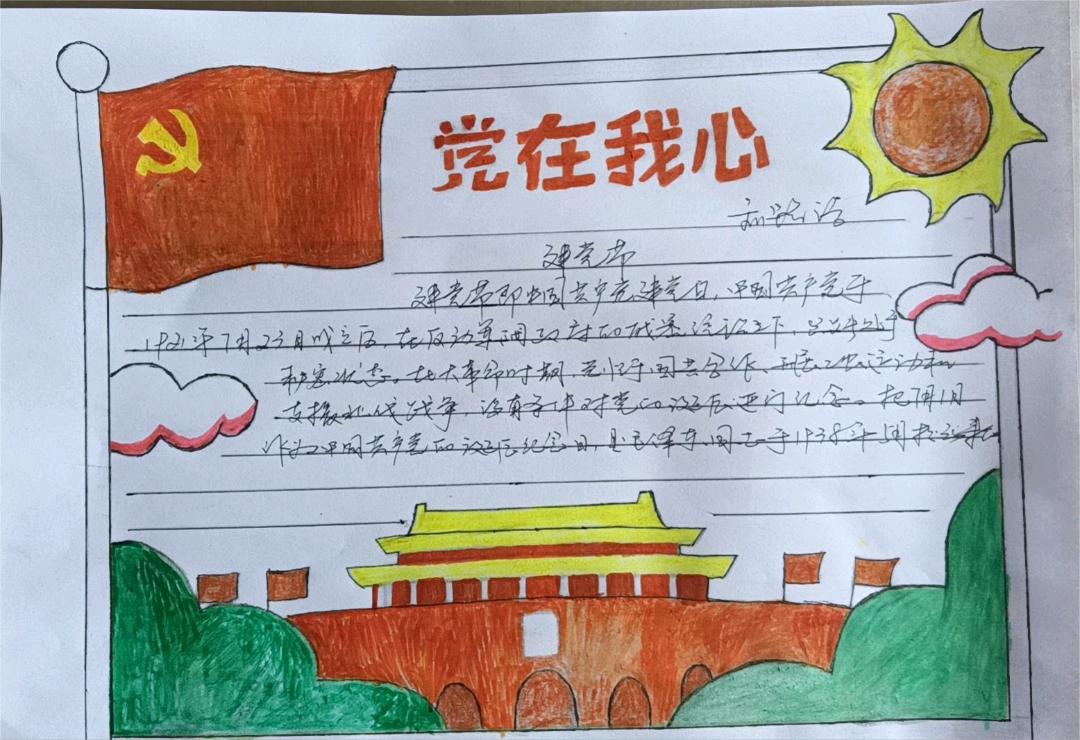 党在我心
建党节
建党节即中国共产党建党日,中国共产党于
1921年7月23日成立后,在反动军阀政府的残暴统治之下,只能处于
秘密状态。在大革命时期,党忙于国共合作、开展工农运动和
支援北伐战争,没有条件对党的诞辰进行纪念。把7月1日
作为中国共产党的诞辰纪念日,是毛泽东同志于1938年5月提出来